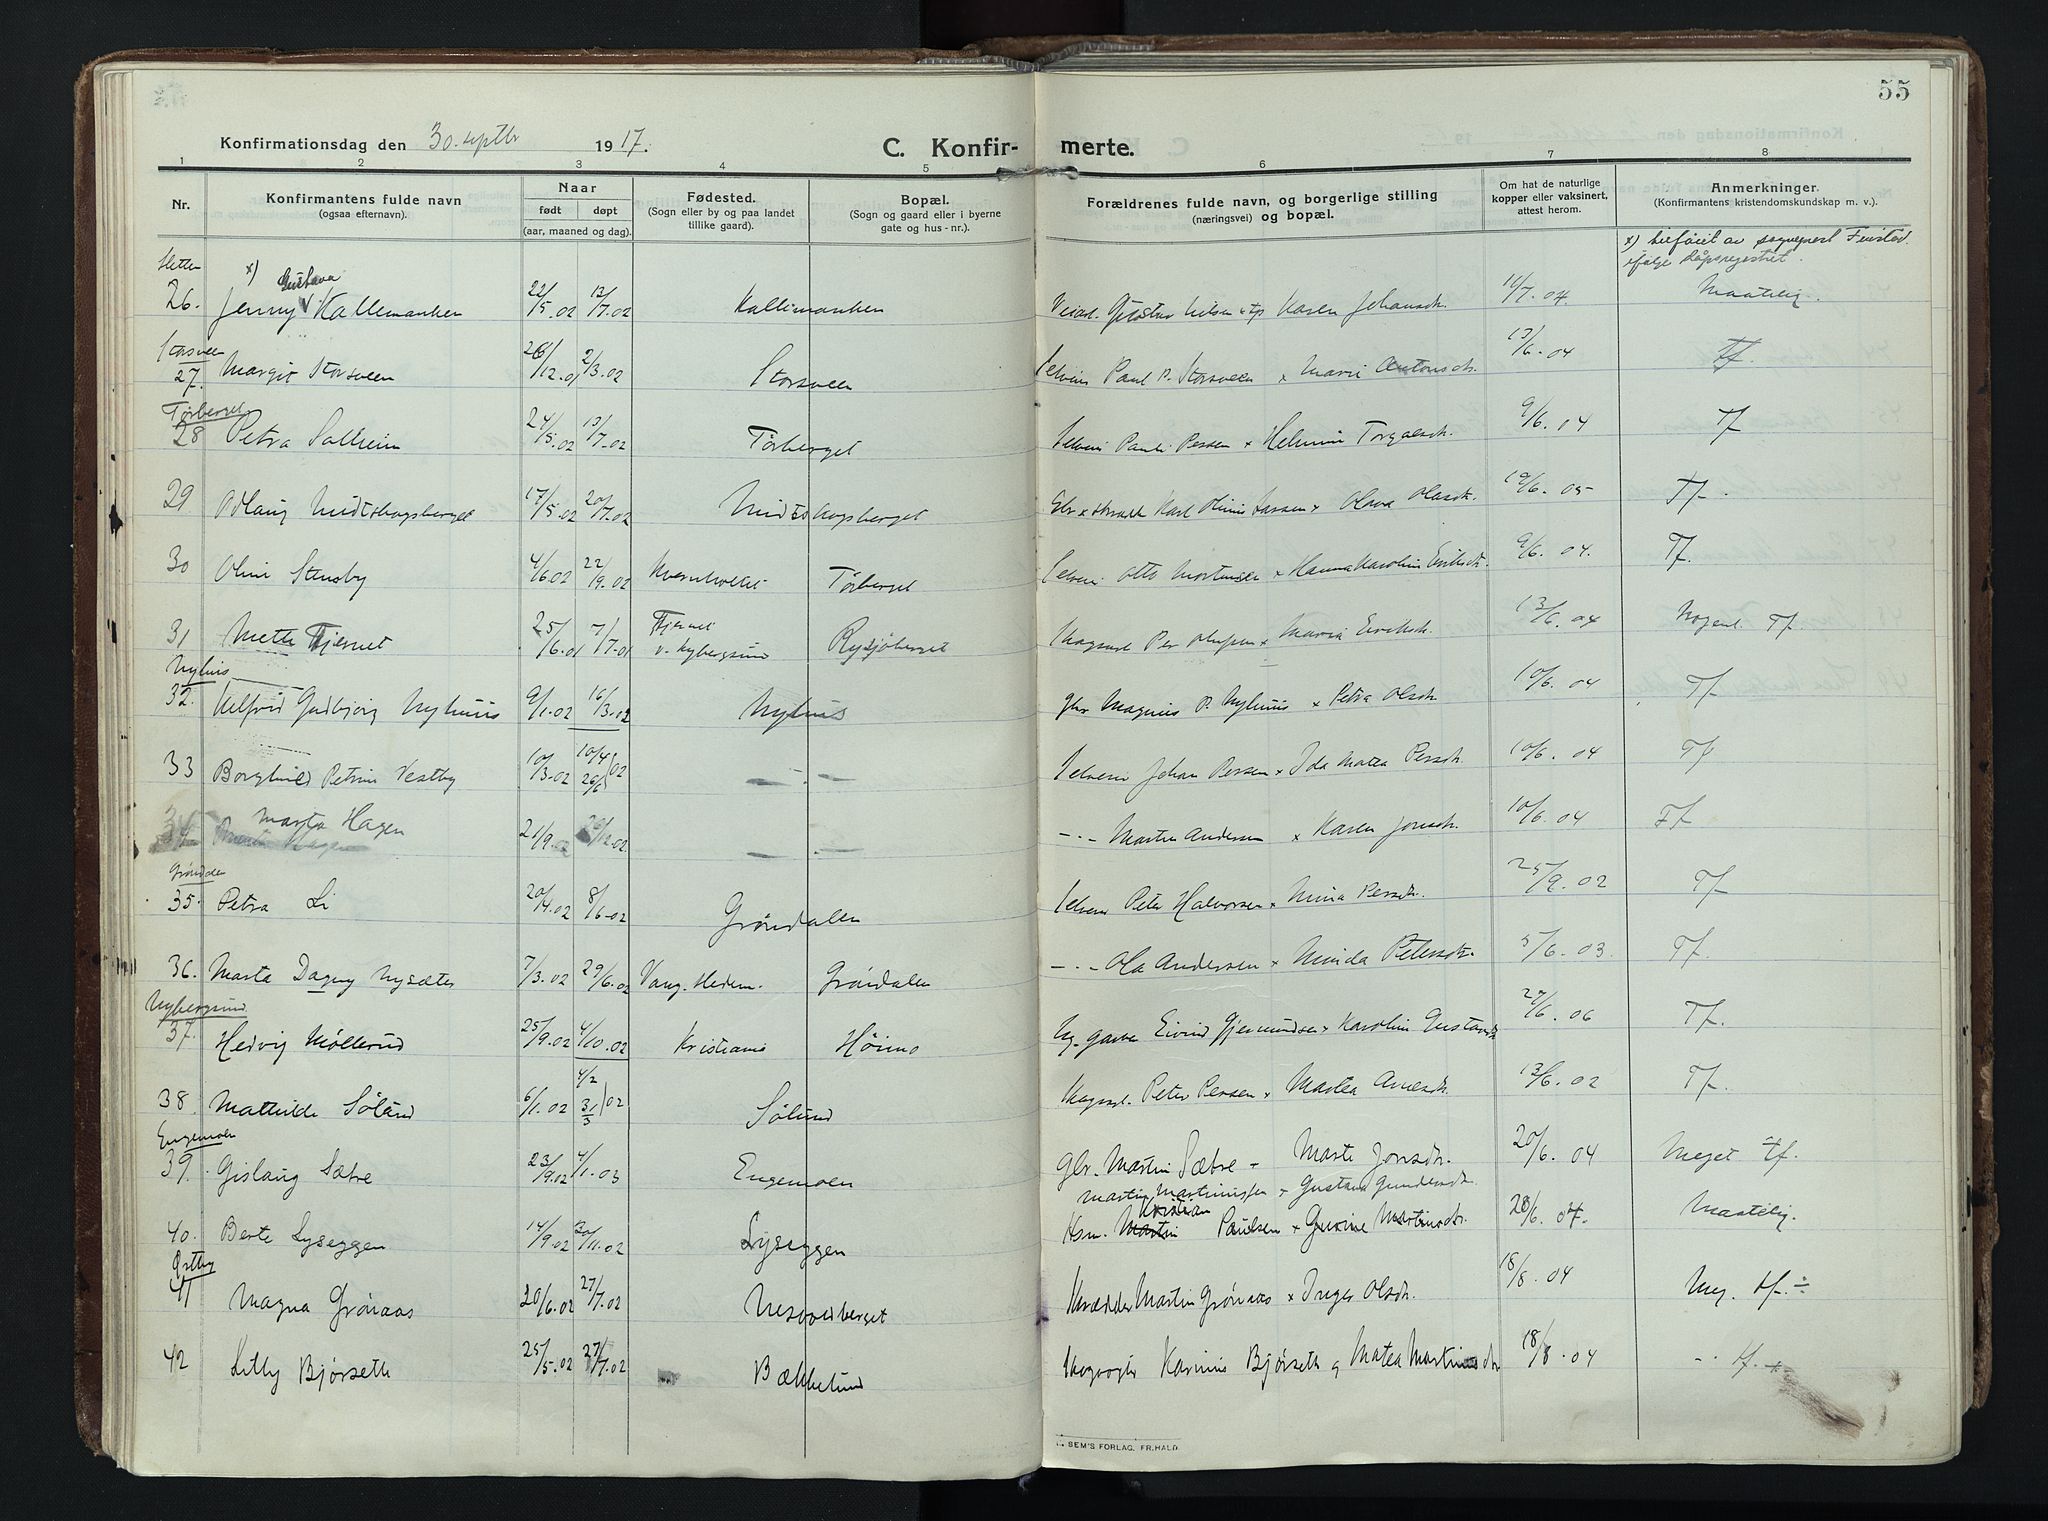 55
Konfirmationsdag den 30. septbr 1917.
C. Konfirmerte.
1 2 3 4 5 6 7 8
Nr.
Konfirmantens fulde navn
(ogsaa efternavn).
Naar
født døpt
(aar, maaned og dag).
Fødested.
(Sogn eller by og paa landet
tillike gaard).
Bopæl.
(Sogn og gaard eller i byerne
gate og hus-nr.).
Forældrenes fulde navn, og borgerlige stilling
(næringsvei) og bopæl.
Om hat de naturlige
kopper eller vaksinert,
attest herom.
Anmerkninger.
(Konfirmantens kristendomskundskap m. v.).
x) Gustava
26. Jenny V Kallemanken 22/5.02 13/7.02 Kallimanken Gustav Nilsen Karen Johansdr. 7.04 Maatelig.
Storsveen
27. Margit Storsveen 26/12.01 2/3.02 Storsveen Selveier Paul P. Storsveen x Marie Antonsdr. 13/6.04 Tf
Tørberget
28 Petra Solheim 24/5.02 13/7.02 Tørberget Selveier Paul Persen x 9/6.04 Tf
29 Odlaug Midtskogsberget 17/5.02 20/7.02 Midtskogsberget Karl Olinus Larsen x Olava Olasdr. 19/6.05 Tf.
30 Oline Stensby 4/6.02 22/9.02 Tørberget Selveier Otto Mortensen x Hanna Karoline Eriksdr. 9/6.04. Tf.
31 Mette Tjernet 25/6.01 7/7.01 Tjernet
v. Nybergsund Rysjøberget Per Olufsen x Maria Eriksdr. 13/6.04 Nogenl. Tf
Nyhus
32. Gudbjørg Nyhuus 9/1.02 16/3.02 Nyhus gbr Magnus P. Nyhuus x Petra Olsdr. 10/6.04 Tf
33 Borghild Petrine Vestby 10/3.02 10/4 26/6 02 — — Selveier Johan Persen x Ida Matea Persdr. 10/6.04 Tf
34 Marta Hagen 21/9.02 12.02 — — -"- Martin Andersen x Karen Jonsdr. 10/6.04 Tf
Grøndalen
35. Petra Li 20/4.02 8/6.02 Grøndalen Selveier Peter Halvorsen x Mina Persdr. 25/9.02 Tf
36. Marta Dagny Nysæter 7/3.02 29/6.02 Vang. Hedem. Grøndalen -"- Ola Andersen x Minda Petersdr. 5/6.03. Tf.
Nybergsund
37. Hedvig Møllerud 25/9.02 4/10.02 Kristiania Høimo Eivind Gjermundsen x Karoline Gustavsdr 27/6.06 Tf.
38. Mathilde Sølund 6/1.02 4/2 31/3 02 Sølund Peter Persen x Martea Arnesdr. 13/6.02 Tf.
Engemoen
39. Gislaug Sætre 23/9.02 4/1.03 Engemoen Gbr. Martin Sætre - Marte Jonsdr. 20/6.04 Meget tf.
Martin Martinussen x Gustava Gundersdr.
40. Berte Lyseggen 14/9.02 30/11.02 Lyseggen Hsm. Martin Kristian Paulsen x Gurine Martinsdr. 28/6.04. Maatelig.
Østby
41 Magna Grønaas 20/6.02 27/7.02 Nesvoldberget Skrædder Martin Grønaas x Inger Olsdr. 18/8.04 Meg. tf. ÷
42 Lilly Bjørseth 25/5.02 27/7.02 Bækkelund Skogvogter Karinius Bjørseth g Matea Martinusdr 18/8.04 -"- tf. +
SEM'S FORLAG. FR.HALD